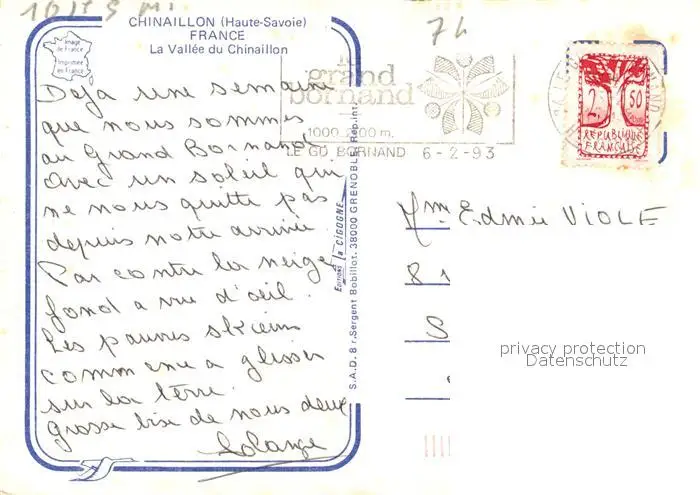 CHINAILLON (Haute-Savoie)
FRANCE
La Vallée du Chinaillon
Image
de France
Imprimée
en France
Deja une semaine
que nous sommes
au Grand Bornand
avec un soleil qui
ne nous quitte pas
depuis notre arrivée
Par contre la neige
fond a vue d'oeil.
Les pauvres skieurs
commence a glisser
sur la terre.
grosse bise de nous deux
Solange
Editions la CIGOGNE
S.A.D. 8 r.Sergent Bobillot, 38000 GRENOBLE Rep.int.
74
le
grand
bornand
1000_2100 m.
LE GD BORNAND 6-2-93
2 50
REPUBLIQUE
FRANÇAISE
Mme Edmée VIOLE
8
S
privacy protection
Datenschutz